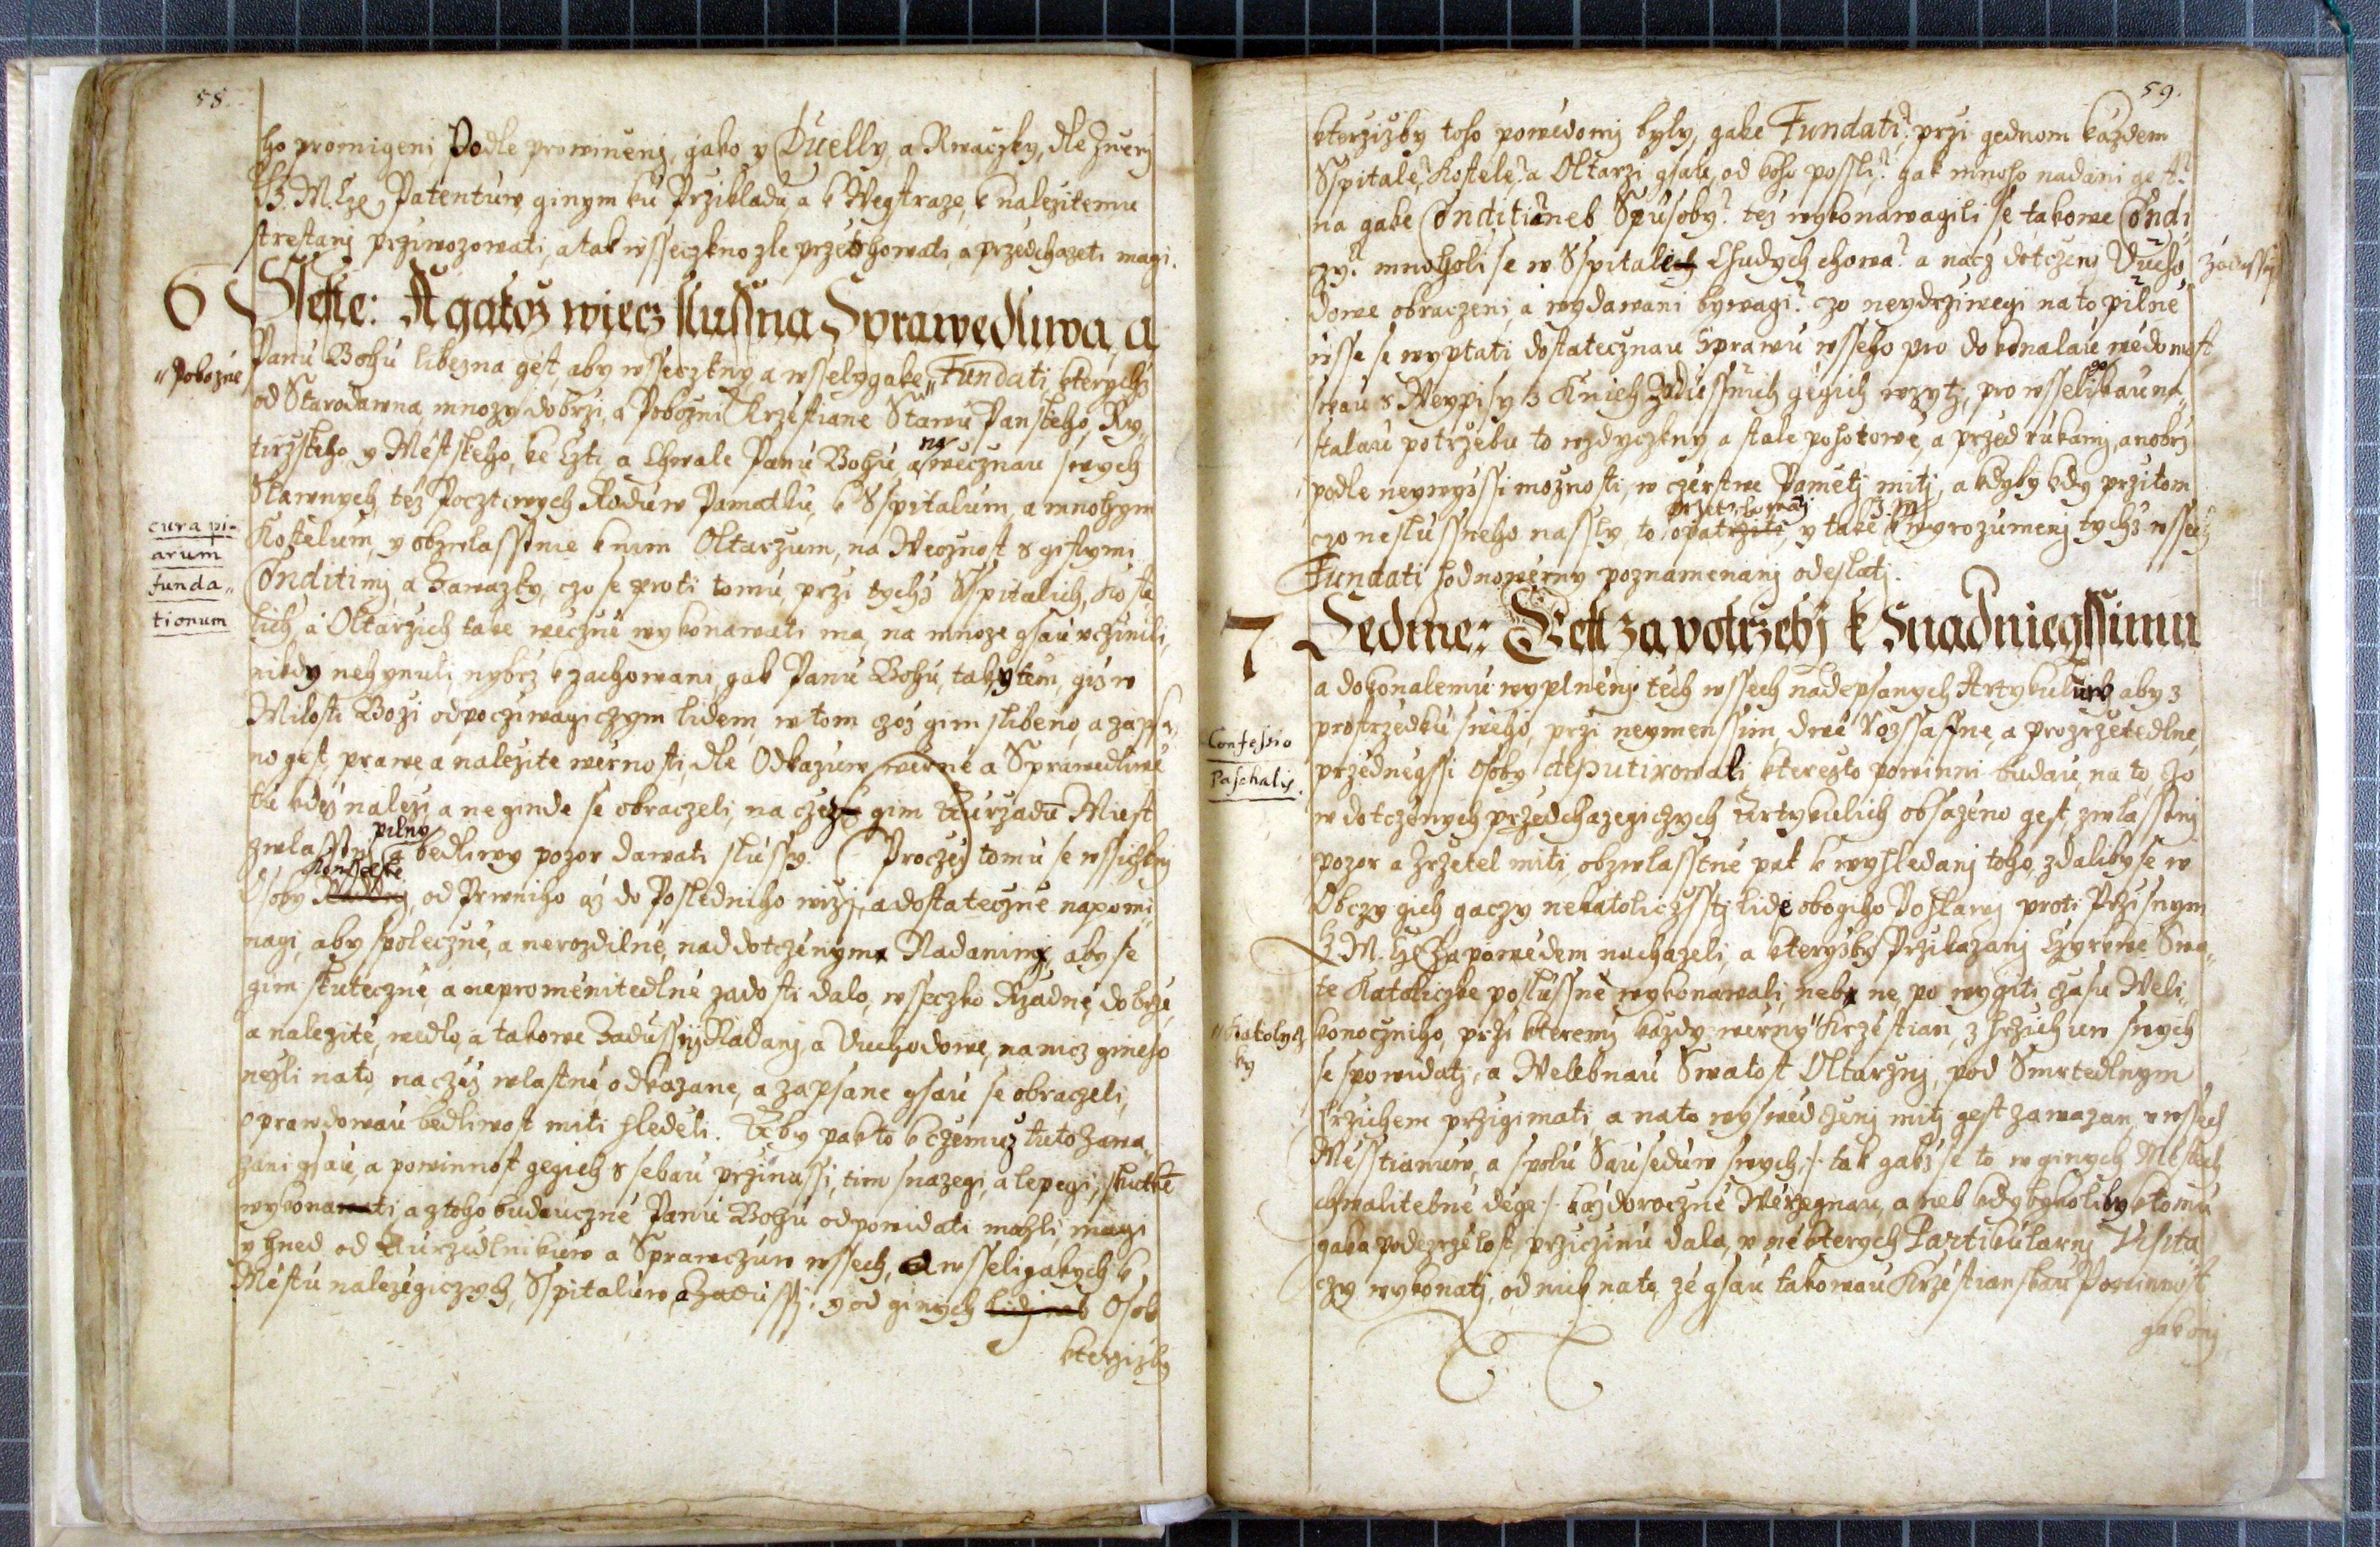 58.
ho promigeni Podle prowineni, gako y Duelly, a Rwaczky, dle Zneni
Patentuw ginym ku Przikladu, a k Weystraze, k nalezitemu
strestani prziwozowati, a tak wsseczkno zle przetrhowati, a przedchazeti magi.
6 Sseste: A gakoz wiecz slussna Sprawedliwa, a
Panu Bohu libezna gest, aby wsseczkny, a wsselygake „ Fundati, kterychz
„ Pobozne
od Starodawna, mnozy dobrzi, a Pobozni Krzestiane Stawu Panskeho, Ry„
tirzskeho, y Mestskeho, ke Czti, a Chwale Panu Bohu, a na wecznau swych
Slawnych, tez Pocztiwych Roduw Pamatku, k Sspitalum, a mnohym
cura pi-
arum
funda„
tionum
Kostelum, y obzwlasstne k nim Oltarzum, na Wecznost s gistymi
Conditimi a Zawazky, czo se proti tomu, przi tychz Sspitalich, Koste„
lich, a Oltarzich take weczne wykonawati ma, na mnoze gsau uczinili,
nikdy nehynuli, nybrz k zachowani, gak Panu Bohu, tak y tem, giz w
Milosti Bozi odpocziwagiczym lidem, w tom czoz gim slibeno, a zapsa„
no gest, prawe a nalezite wernosti, dle Odkazuw werne a Sprawedliwe
tu kdez nalezi, a neginde se obraczeli, na czez gim z Aurzadu Miest
zwlasstni pilny a bedliwy pozor dawati slussy. (Proczez) tomu se wssichkni
Osoby Konsselske Raddni, od Prwniho az do Posledniho wizi, a dostateczne napomi„
nagi, aby spoleczne, a nerozdilne, nad dotczenym Nadanim, aby se
gim skuteczne, a nepromenitedlne zadosti dalo, wsseczko Rzadne, dobrze,
a nalezite, wedlo, a takowe Zadussij Nadani, a Duchodowe, na nicz gineho
nezli na to, na czez wlastne odkazane, a zapsane gsau se obraczeli,
oprawdowau bedliwost miti hledeli. Aby pak to k czemuz tuto Zawa„
zani gsau, a powinnost gegich s sebau przinassi, tim snazegi, a lepegi, skutkem
wykonawati, a z toho budauczne Panu Bohu odpowidati mohli, magi
y hned od Aurzedlnikuw a Sprawczuw wssech, a wsseligakych k
Mestu nalezegiczych, Sspitaluw, a Zadussi, y od ginych lidi neb Osob
kterzizby

59.
kterzizby toho powedomi byly, gake Fundati? przi gednom kazdem
Sspitale? Kostele? a Oltarzi gsau, od koho possli? gak mnoho nadani gest?
na gake Conditi? aneb Spusoby? tez wykonawagili se takowe Condi„
czy? mnoholi se w Sspitalich Chudych chowa? a nacz dotczeni Ducho„ zadussni
dowe obraczeni, a wydawani bywagi? czo neydrziwegi na to pilne
wsse se wyptati dostatecznau Sprawu wsseho pro dokonalau wedomost
swau s Weypisy z Knich Zadussnich gegich wzyti, pro wsselikau na„
stalau potrzebu to wzdyczkny, a stale pohotowe, a przed rukami, anobrz
podle neywyssi moznosti, w czerstwe Pameti miti, a kdyby kdy przitom
czo neslussneho nassly, to przetrhowati opatrziti y take k wyrozumeni tychz wssech
Fundati hodnowerny poznamenani odeslati.
7 Sedme: Gest za potrzebi k Snadniegssimu
a dokonalemu wyplneni tech wssech nadepsanych Artykuluw aby z
prostrzedku sweho, przi neymenssim, dwe Rozssaffne, a prozrzetedlne,
Confessio
Paschalis.
przednegssi Osoby deputirowali kterezto powinni budau, na to, czo
w dotczenych przedchazegiczych Artykulich obsazeno gest, zwlasstni
pozor a Zrzetel miti, obzwlasstne pak k wyhledani toho, zdaliby se w
Obczy gich gaczy nekatoliczsstj lide obogiho Pohlawi proti Przisnym
Zapowedem nachazeli, a kteryzby Przikazani Czyrkwe Swa„
te Katoliczke poslussne wykonawali, neb ne, po wygiti czasu Weli„
„ Katolycz„
ky
konoczniho, przi kterem kazdy werny „ Krzestian, z hrzichuw swych
se spowidati, a Welebnau Swatost Oltarzni, pod Smrtedlnym
hrzichem przigimati, a na to wyswedczeni miti gest zawazan, u wssech
Messtianuw, a spolu Sauseduw swych, :/: tak gakz se to w ginych Mestech
chwalitebne dege :/: kazdoroczne Werzegnau, a neb kdykykoliby k tomu
gaka podezrzelost, przicziny dala, u nekterych Particularni Visita„
czy wykonati, od nich na to, ze gsau takowau Krzestianskau Powinnost
gakozj